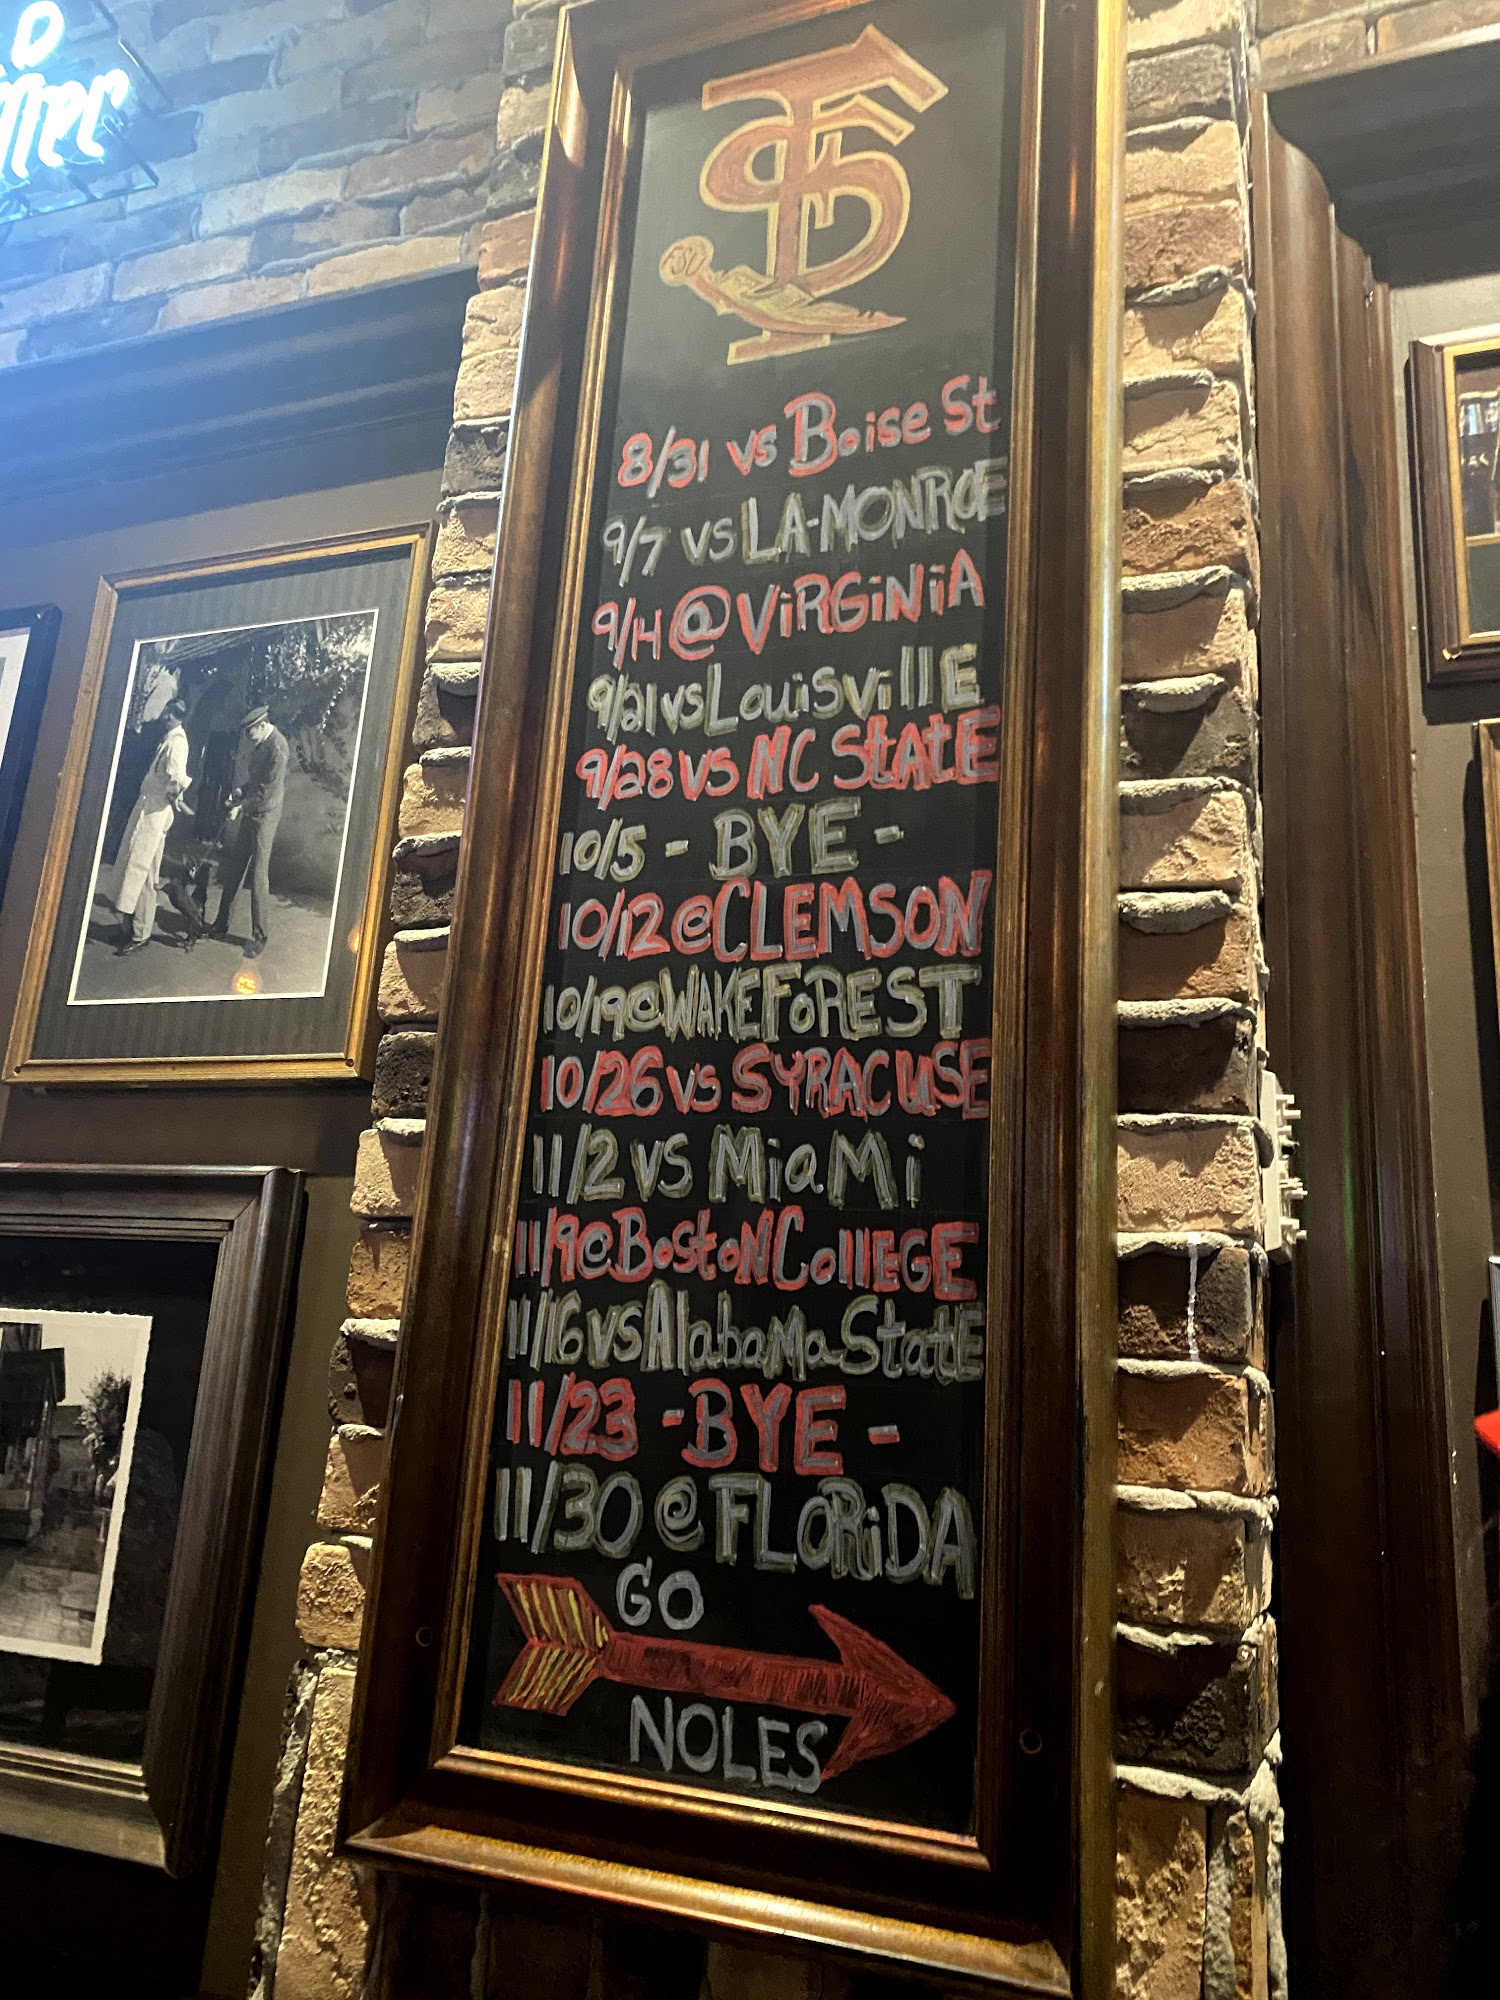 FS
FSU
8/31 vs Boise St
9/7 vs LA-MONROE
9/14 @ VIRGINIA
9/21 vs LouisvillE
9/28 vs NC StAtE
10/5 - BYE -
10/12 @ CLEMSON
10/19 @ WAKE FoREST
10/26 vs SYRACUSE
11/2 vs MiaMi
11/9 @ BostoN CollEGE
11/16 vs AlabaMa StatE
11/23 - BYE -
11/30 @ FLoRiDA
GO
NOLES